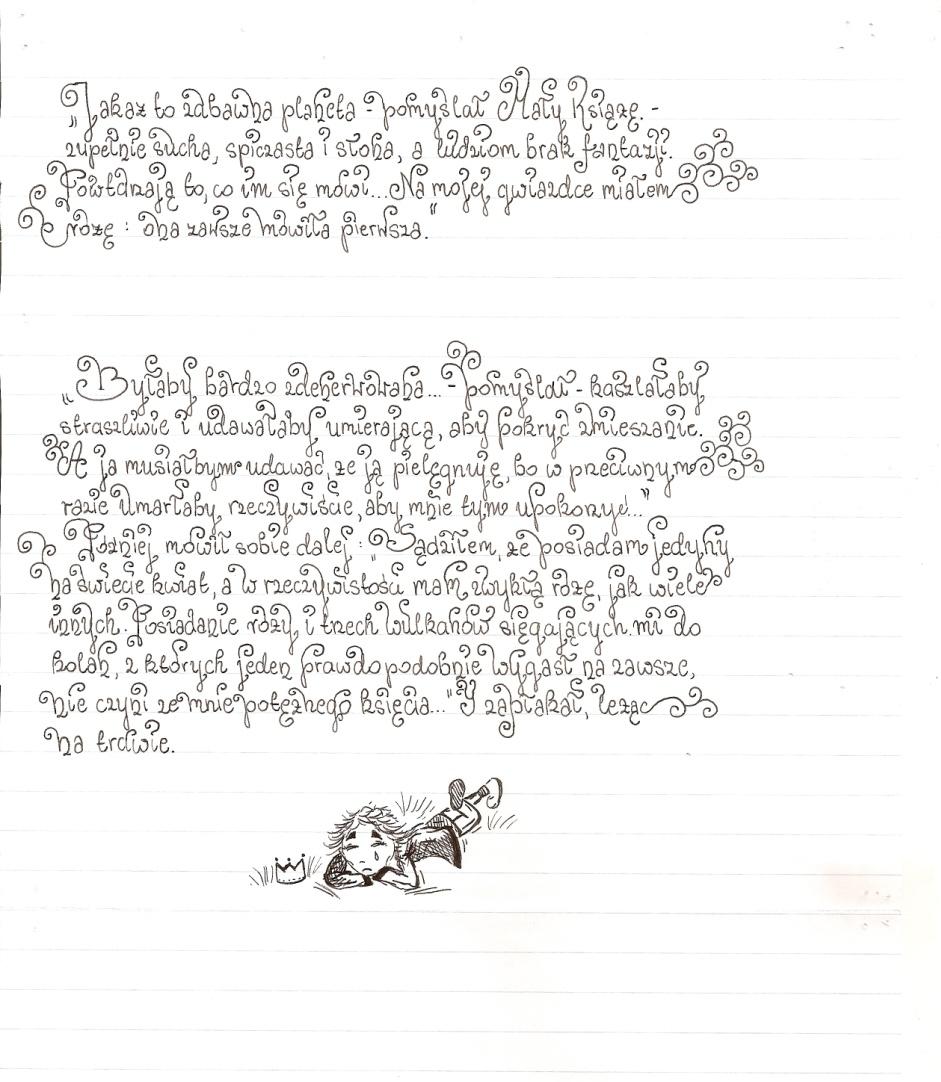 „Jakaż to zabawna planeta - pomyślał Mały Książę. -
zupełnie sucha, spiczasta i słona, a ludziom brak fantazji.
Powtarzają to, co im się mówi... Na mojej gwiazdce miałem
różę: ona zawsze mówiła pierwsza."
„Byłaby bardzo zdenerwowana... - pomyślał - kaszlałaby
straszliwie i udawałaby umierającą, aby pokryć zmieszanie.
A ja musiałbym udawać, że ją pielęgnuję, bo w przeciwnym
razie umarłaby rzeczywiście, aby mnie tym upokorzyć..."
Później mówił sobie dalej: „Sądziłem, że posiadam jedyny
na świecie kwiat, a w rzeczywistości mam zwykłą różę, jak wiele
innych. Posiadanie róży i trzech wulkanów sięgających mi do
kolan, z których jeden prawdopodobnie wygasł na zawsze,
nie czyni ze mnie potężnego księcia..." I zapłakał, leżąc
na trawie.